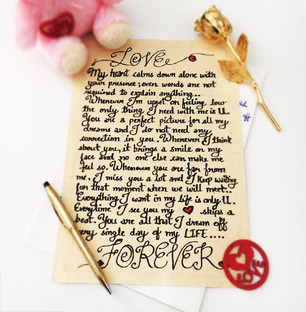 LOVE
My heart calms down alone with
your presence, even words are not
required to explain anything...
Whenever I'm upset or feeling low
the only thing, I need with me is U.
You are a perfect picture for all my
dreams and I do not need any
correction in you. Whenever I think
about you, it brings a smile on my
face and no one else can make me
feel so. Whenever you are far from
me, I miss you a lot and I keep waiting
for that moment when we will meet.
Everything I want in my life is only U.
Everytime I see you my skips a
beat. You are all that I dream off
every single day of my LIFE....
FOREVER
LOVE